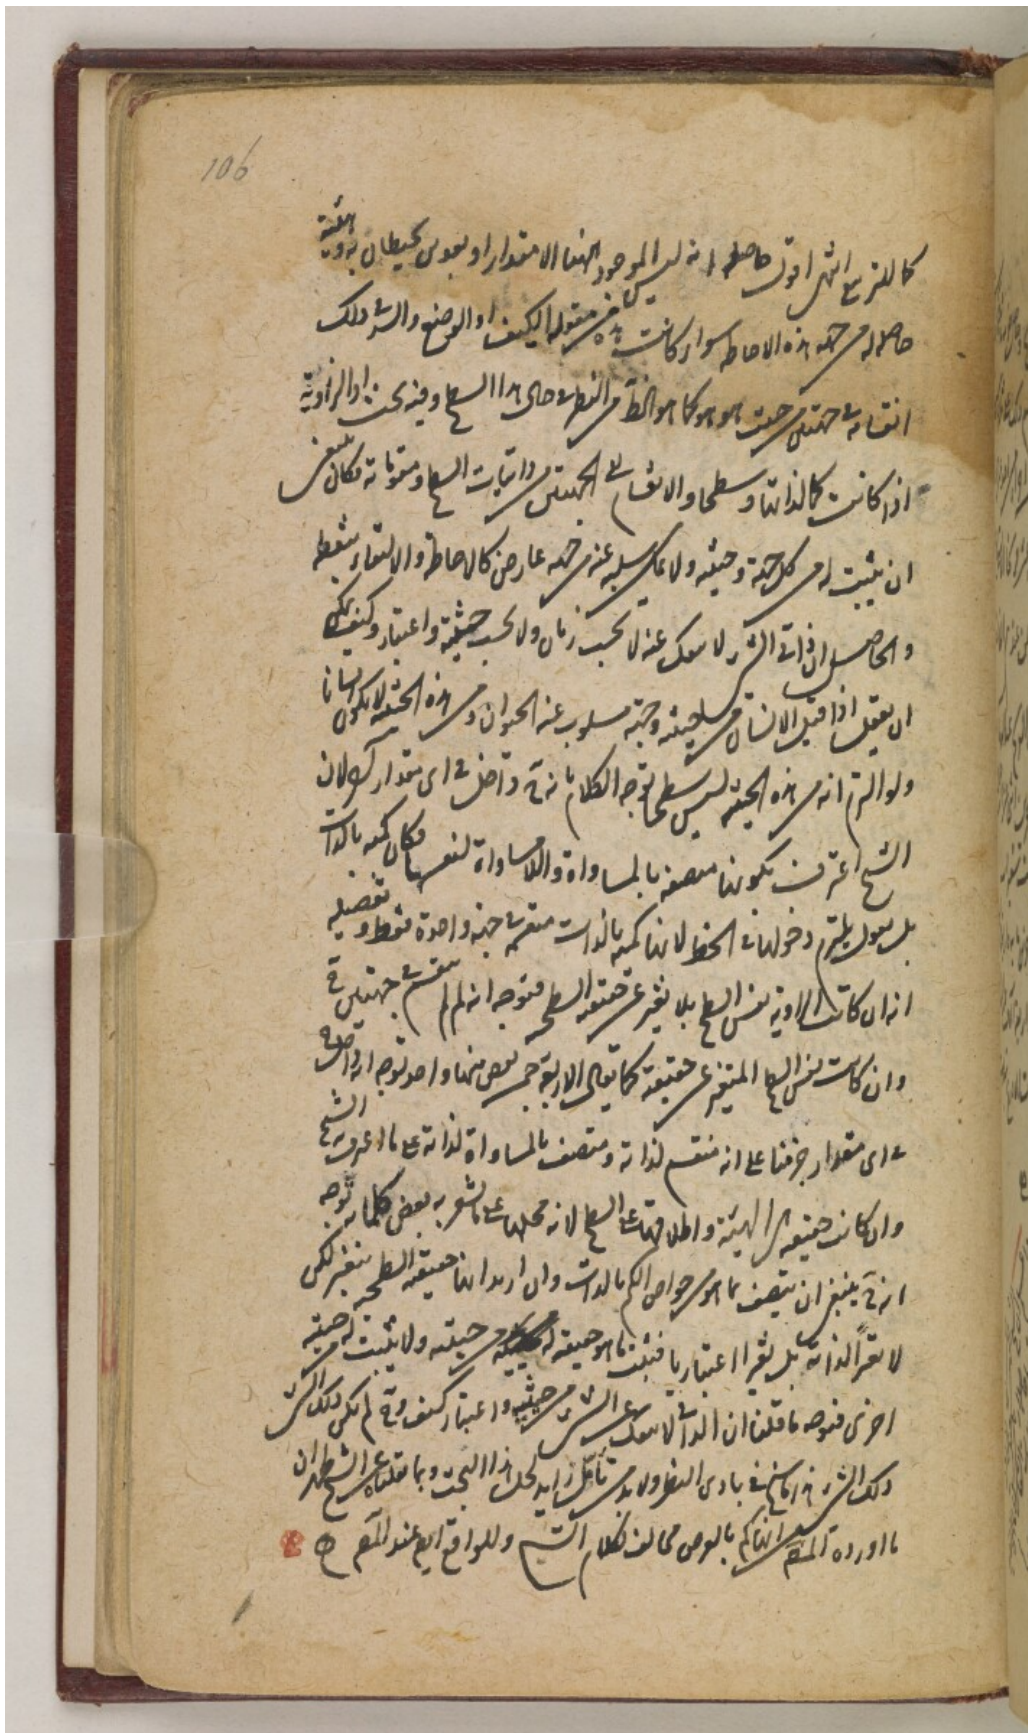 106
كالتربيع انتهى اقول حاصله انه ليس الموجود ههنا الا مقدارا وبعدين يحيطان به وهيئة
حاصلة من جهة هذه الاحاطة سواء كانت هذه من مقولة الكيف او الوضع وليس ذلك
انقسامه في جهتين من حيث هو هو كما هو الظ من النظر في حال هذا السطح وفيه بحث اذ الزاوية
اذا كانت كما لذاتها وسطحا والانقسام في الجهتين من ذاتيات السطح ومقوماته فكان ينبغي
ان يثبت له من كل جهة وحيثية ولا يمكن سلبه عنه من جهة عارض كالاحاطة والالتقاء بنقطة
والحاصل ان ذاتي الشيء لا ينفك عنه لا بحسب زمان ولا بحسب حيثية واعتبار وكيف يمكن
ان يعقل اذا قيل الانسان من حيثية وجهة مسلوب عنه الحيوان ومن هذه الحيثية لا يكون انسانا
ولو التزم انه من هذه الحيثية ليس سطحا توجه الكلام بانه ح داخل في اى مقدار لان
الشيخ اعترف بكونها متصفة بالمساواة واللامساواة لنفسها فكان كمية بالذات
بل نقول يلتزم دخولها في الخط لانها كمية بالذات منقسمة في جهة واحدة فقط وتفصيله
انه ان كانت الزاوية نفس السطح بلا تغير عن حقيقة السطح فتوجه انه لم لم ينقسم في جهتين ح
وان كانت نفس السطح المتغير عن حقيقته كما يقال الاربعة خمس بعض منها واحد توجه انه داخل ح
في اى مقدار جزمنا على انه منقسم لذاته ومتصف بالمساواة لذاته على ما اعترف به الشيخ
وان كانت حقيقة هي الهيئة واطلاقها على السطح لانه محلها على ما يشعر به بعض كلماته توجه
انه ح ينبغي ان يتصف بما هو من خواص الكم بالذات وان اريد انها حقيقة السطح بتغير لكن
لا تغيرا لذاته بل تغيرا اعتباريا فيثبت ما هو حقيقة له من حيثية ولا يثبت له من حيثية
اخرى فتوجه ما قلنا ان الذاتي لا ينفك عن الشيء من حيثية واعتبار كيف وح لم يكن ذلك الشيء
ذلك الشيء هذا ما سنح في بادى النظر ولا بد من تأمل زايد لحل هذا البحث وبما نقلناه عن الشيخ ظهر ان
ما اورده المص من انها كم بالعرض مخالف لكلام الشيخ وللواقع ايضا عند المص